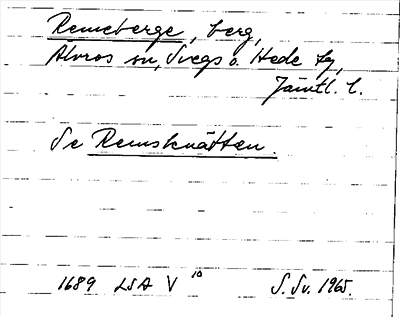 Remeberge, berg,
Älvros sn, Svegs o. Hede tg,
Jämtl. l.
Se Remsknätten.
1689 LSA V 10 S. Sv. 1965.